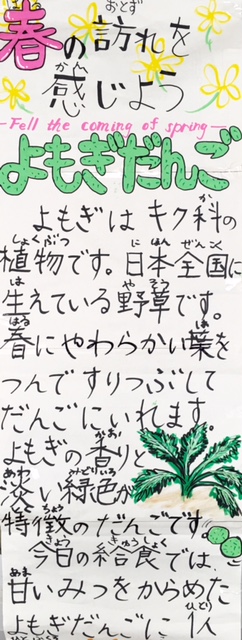 春の訪れを
感じよう
-Fell the coming of spring-
よもぎだんご
よもぎはキク科の
植物です。日本全国に
生えている野草です。
春にやわらかい葉を
つんですりつぶして
だんごにいれます。
よもぎの香りと
淡い緑色が
特徴のだんごです。
今日の給食では、
甘いみつをからめた
よもぎだんごに1人